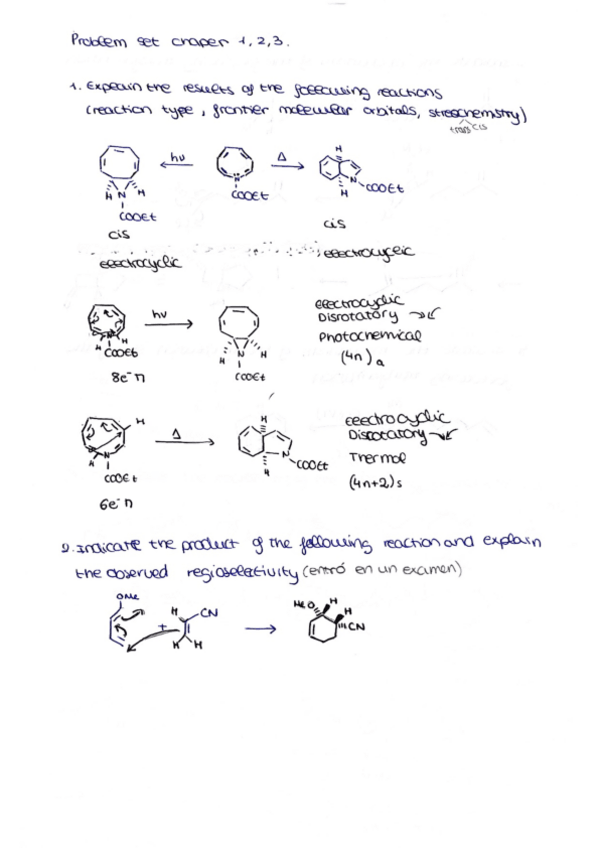 Problem set chaper 1,2,3.
1. Explain the results of the following reactions
(reaction type, frontier molecular orbitals, streochemistry)
trans cis
hν
Δ
H N H
N
COOEt
H
N
COOEt
H
COOEt
cis
cis
electrocyclic
electrocyclic
hν
H N H
COOEt
8e⁻ π
H N H
COOEt
electrocyclic
Disrotatory
Photochemical
(4n)a
H
H N
COOEt
6e⁻ π
Δ
H
N
COOEt
H
electrocyclic
Disrotatory
Thermal
(4n+2)s
2. Indicate the product of the following reaction and explain
the observed regioselectivity (entró en un examen)
OMe
+
H
CN
H
H
MeO
H
H
CN